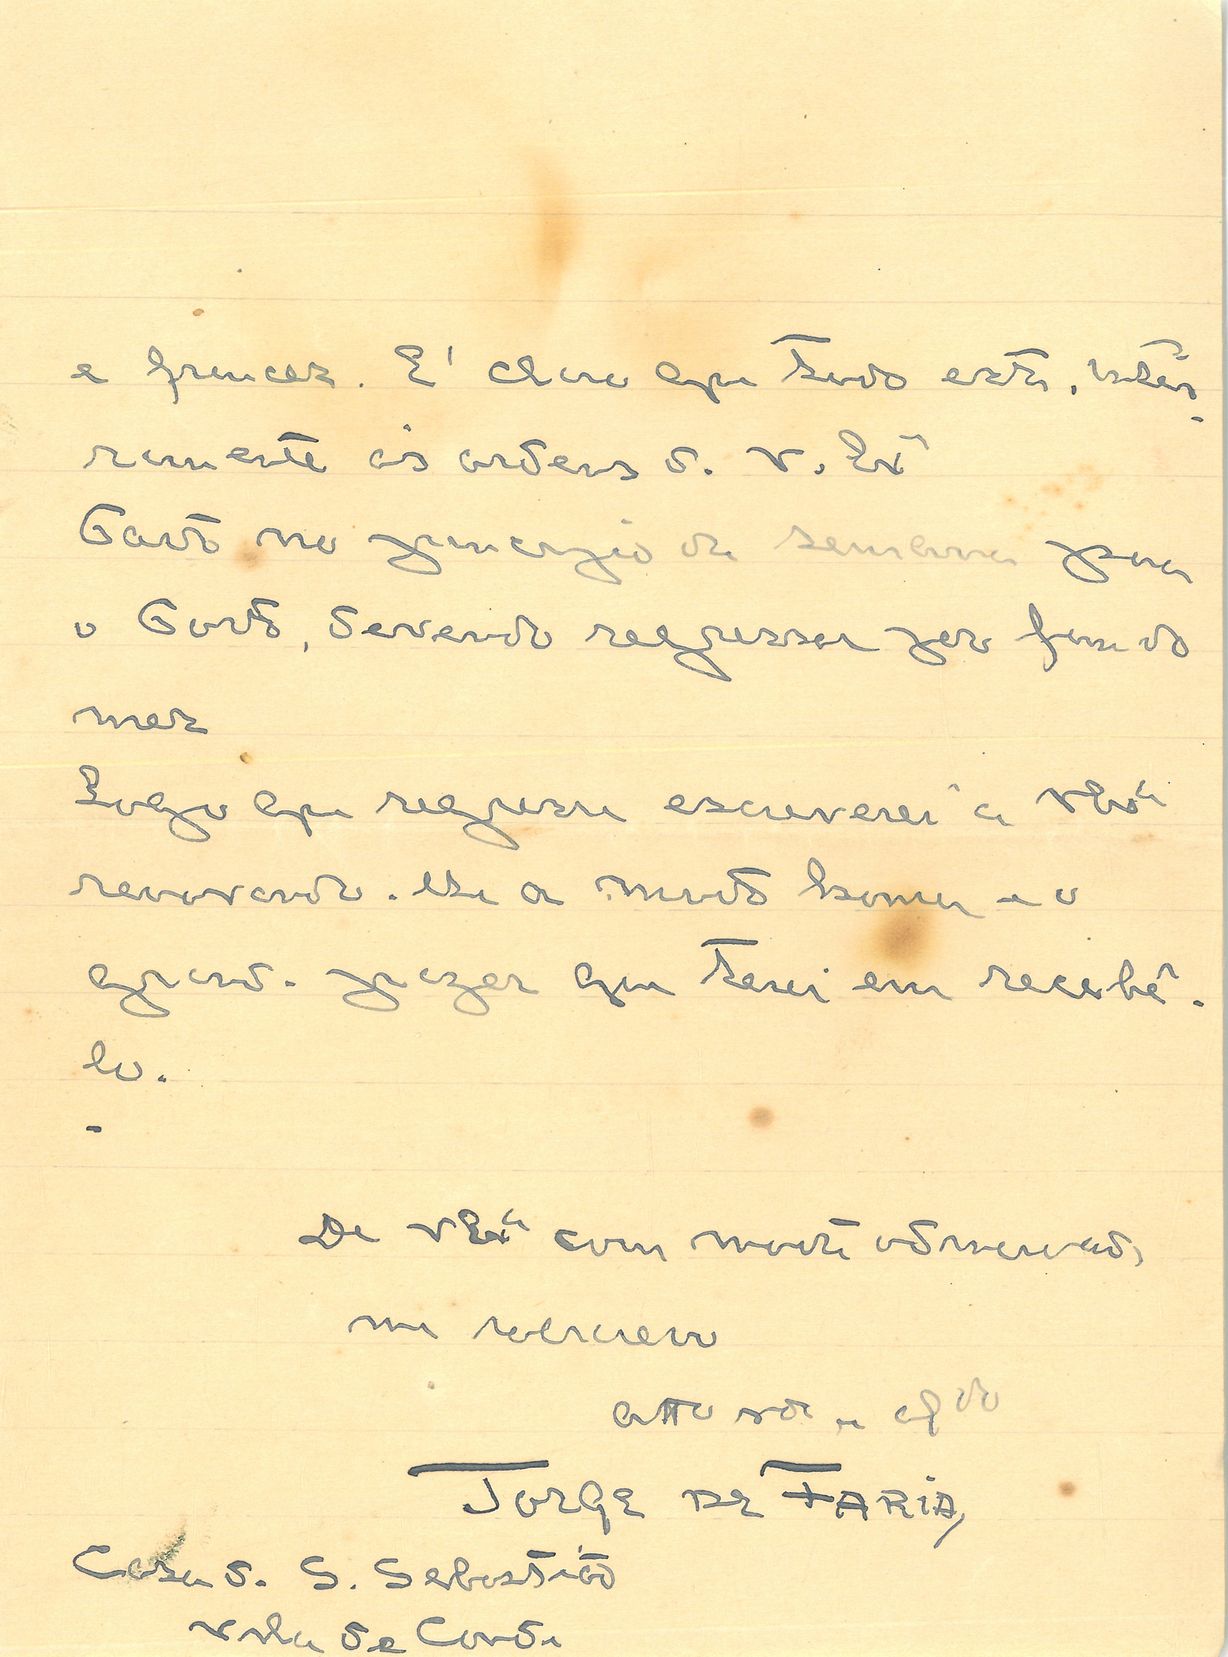 e francez. E' claro que tudo está, intei-
ramente ás ordens d. V. Exª
Parto no principio da semana para
o Porto, devendo regressar por fim do
mez
Logo que regresse escreverei a VExª
renovando. lhe a muita honra e o
grand. prazer que terei em recebê-
lo.
-
De VExª com muita admiração,
me subscrevo
atto vor e obgdo
Jorge de Faria,
Casa d. S. Sebastião
Vila de Conde